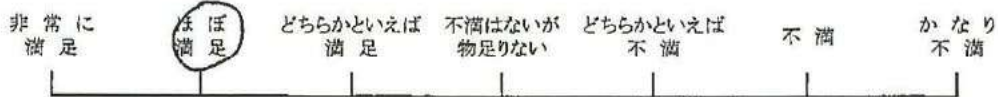 非常に満足
ほぼ満足
どちらかといえば満足
不満はないが物足りない
どちらかといえば不満
不満
かなり不満